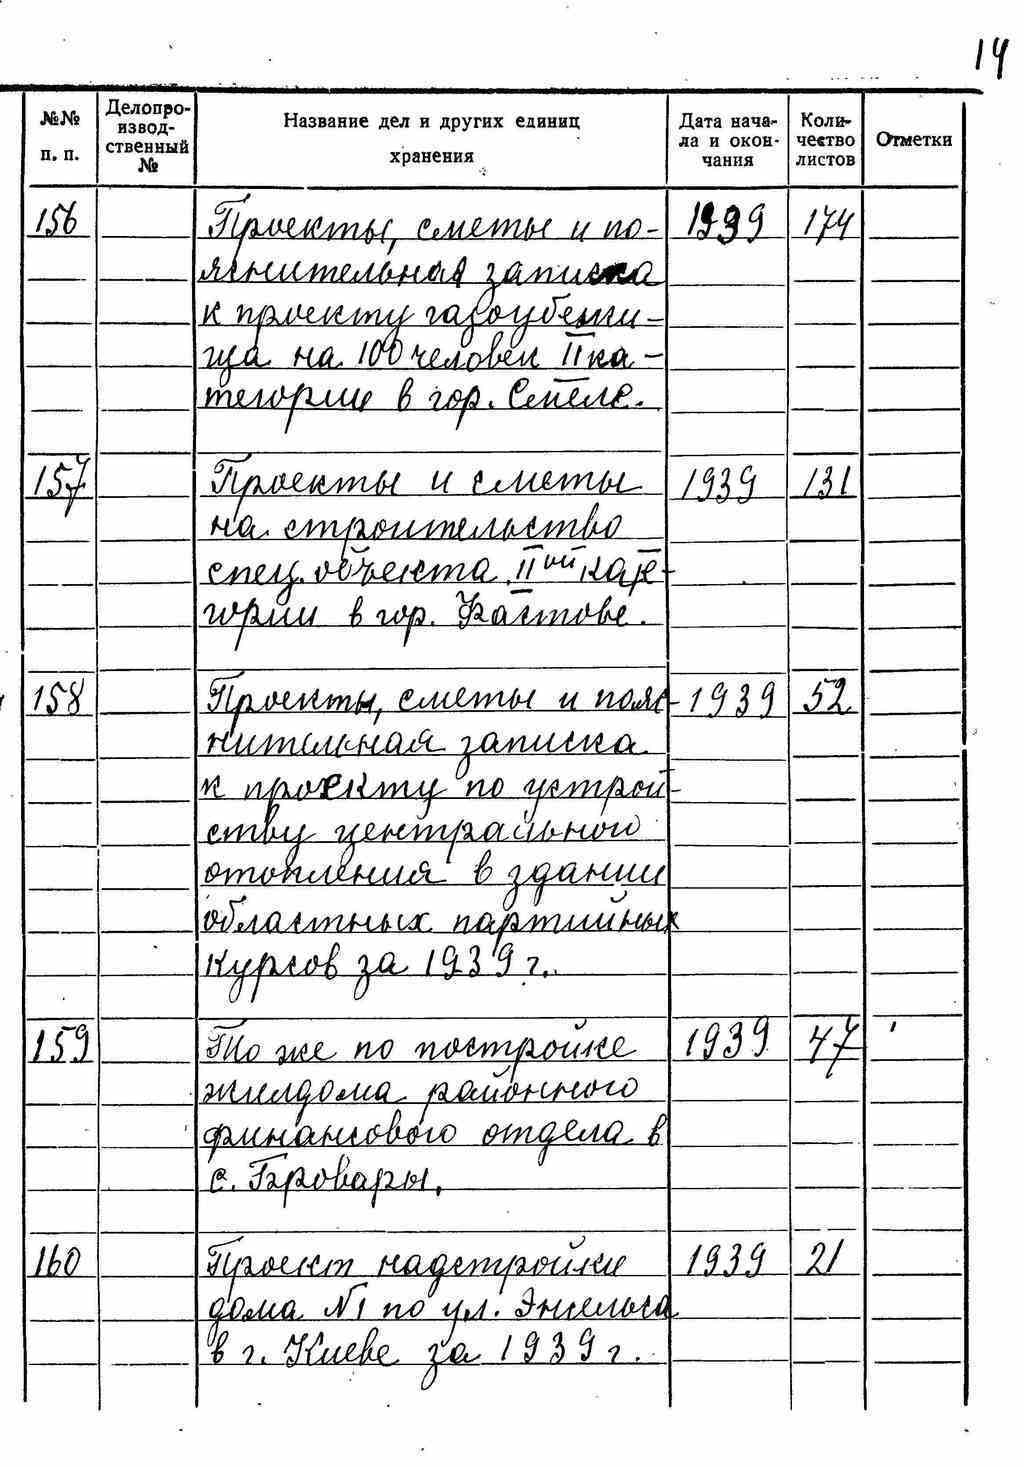 14
№№ п. п. Делопро-извод-ственный № Название дел и других единиц хранения Дата нача-ла и окон-чания Коли-чество листов Отметки
156 Проекты, сметы и по- 1939 174
яснительная записка
к проекту газоубежи-
ща на 100 человек II ка-
тегории в гор. Смеле.
157 Проекты и сметы 1939 131
на строительство
спец. объекта II ой кате-
гории в гор. Фастове.
158 Проекты, сметы и пояс- 1939 52
нительная записка
к проекту по устрой-
ству центрального
отопления в здании
областных партийных
курсов за 1939 г.
159 То же по постройке 1939 47
жилдома районного
финансового отдела в
с. Бровары.
160 Проект надстройки 1939 21
дома №1 по ул. Энгельса
в г. Киеве за 1939 г.